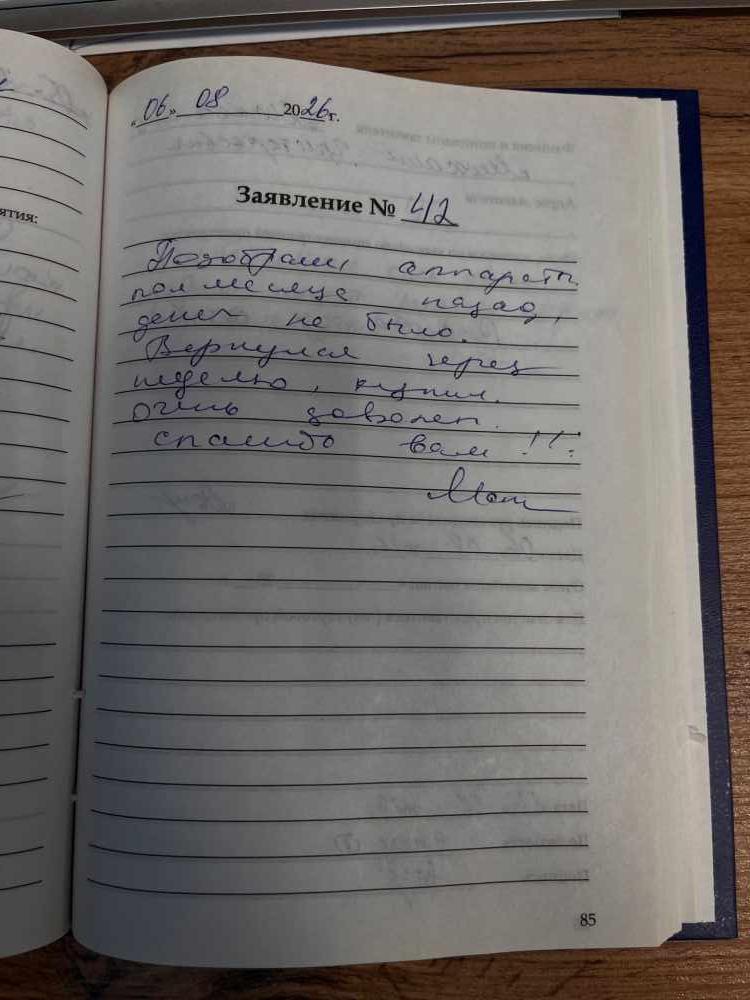 «06» 08 2026 г.
Заявление № 42
Подобрали аппараты
пол месяца назад,
денег не было.
Вернулся через
неделю, купил.
очень доволен.
спасибо вам!!!
ятия:
85